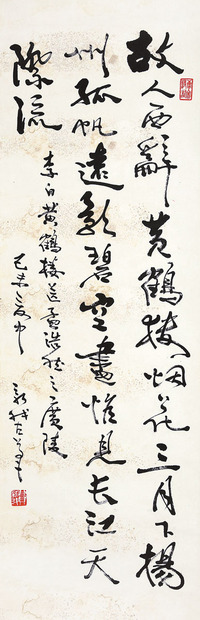 故人西辭黄鶴樓烟花三月下揚
州孤帆遠影碧空盡惟見長江天
際流
李白黄鶴樓送孟浩然之廣陵
己未 新我左筆